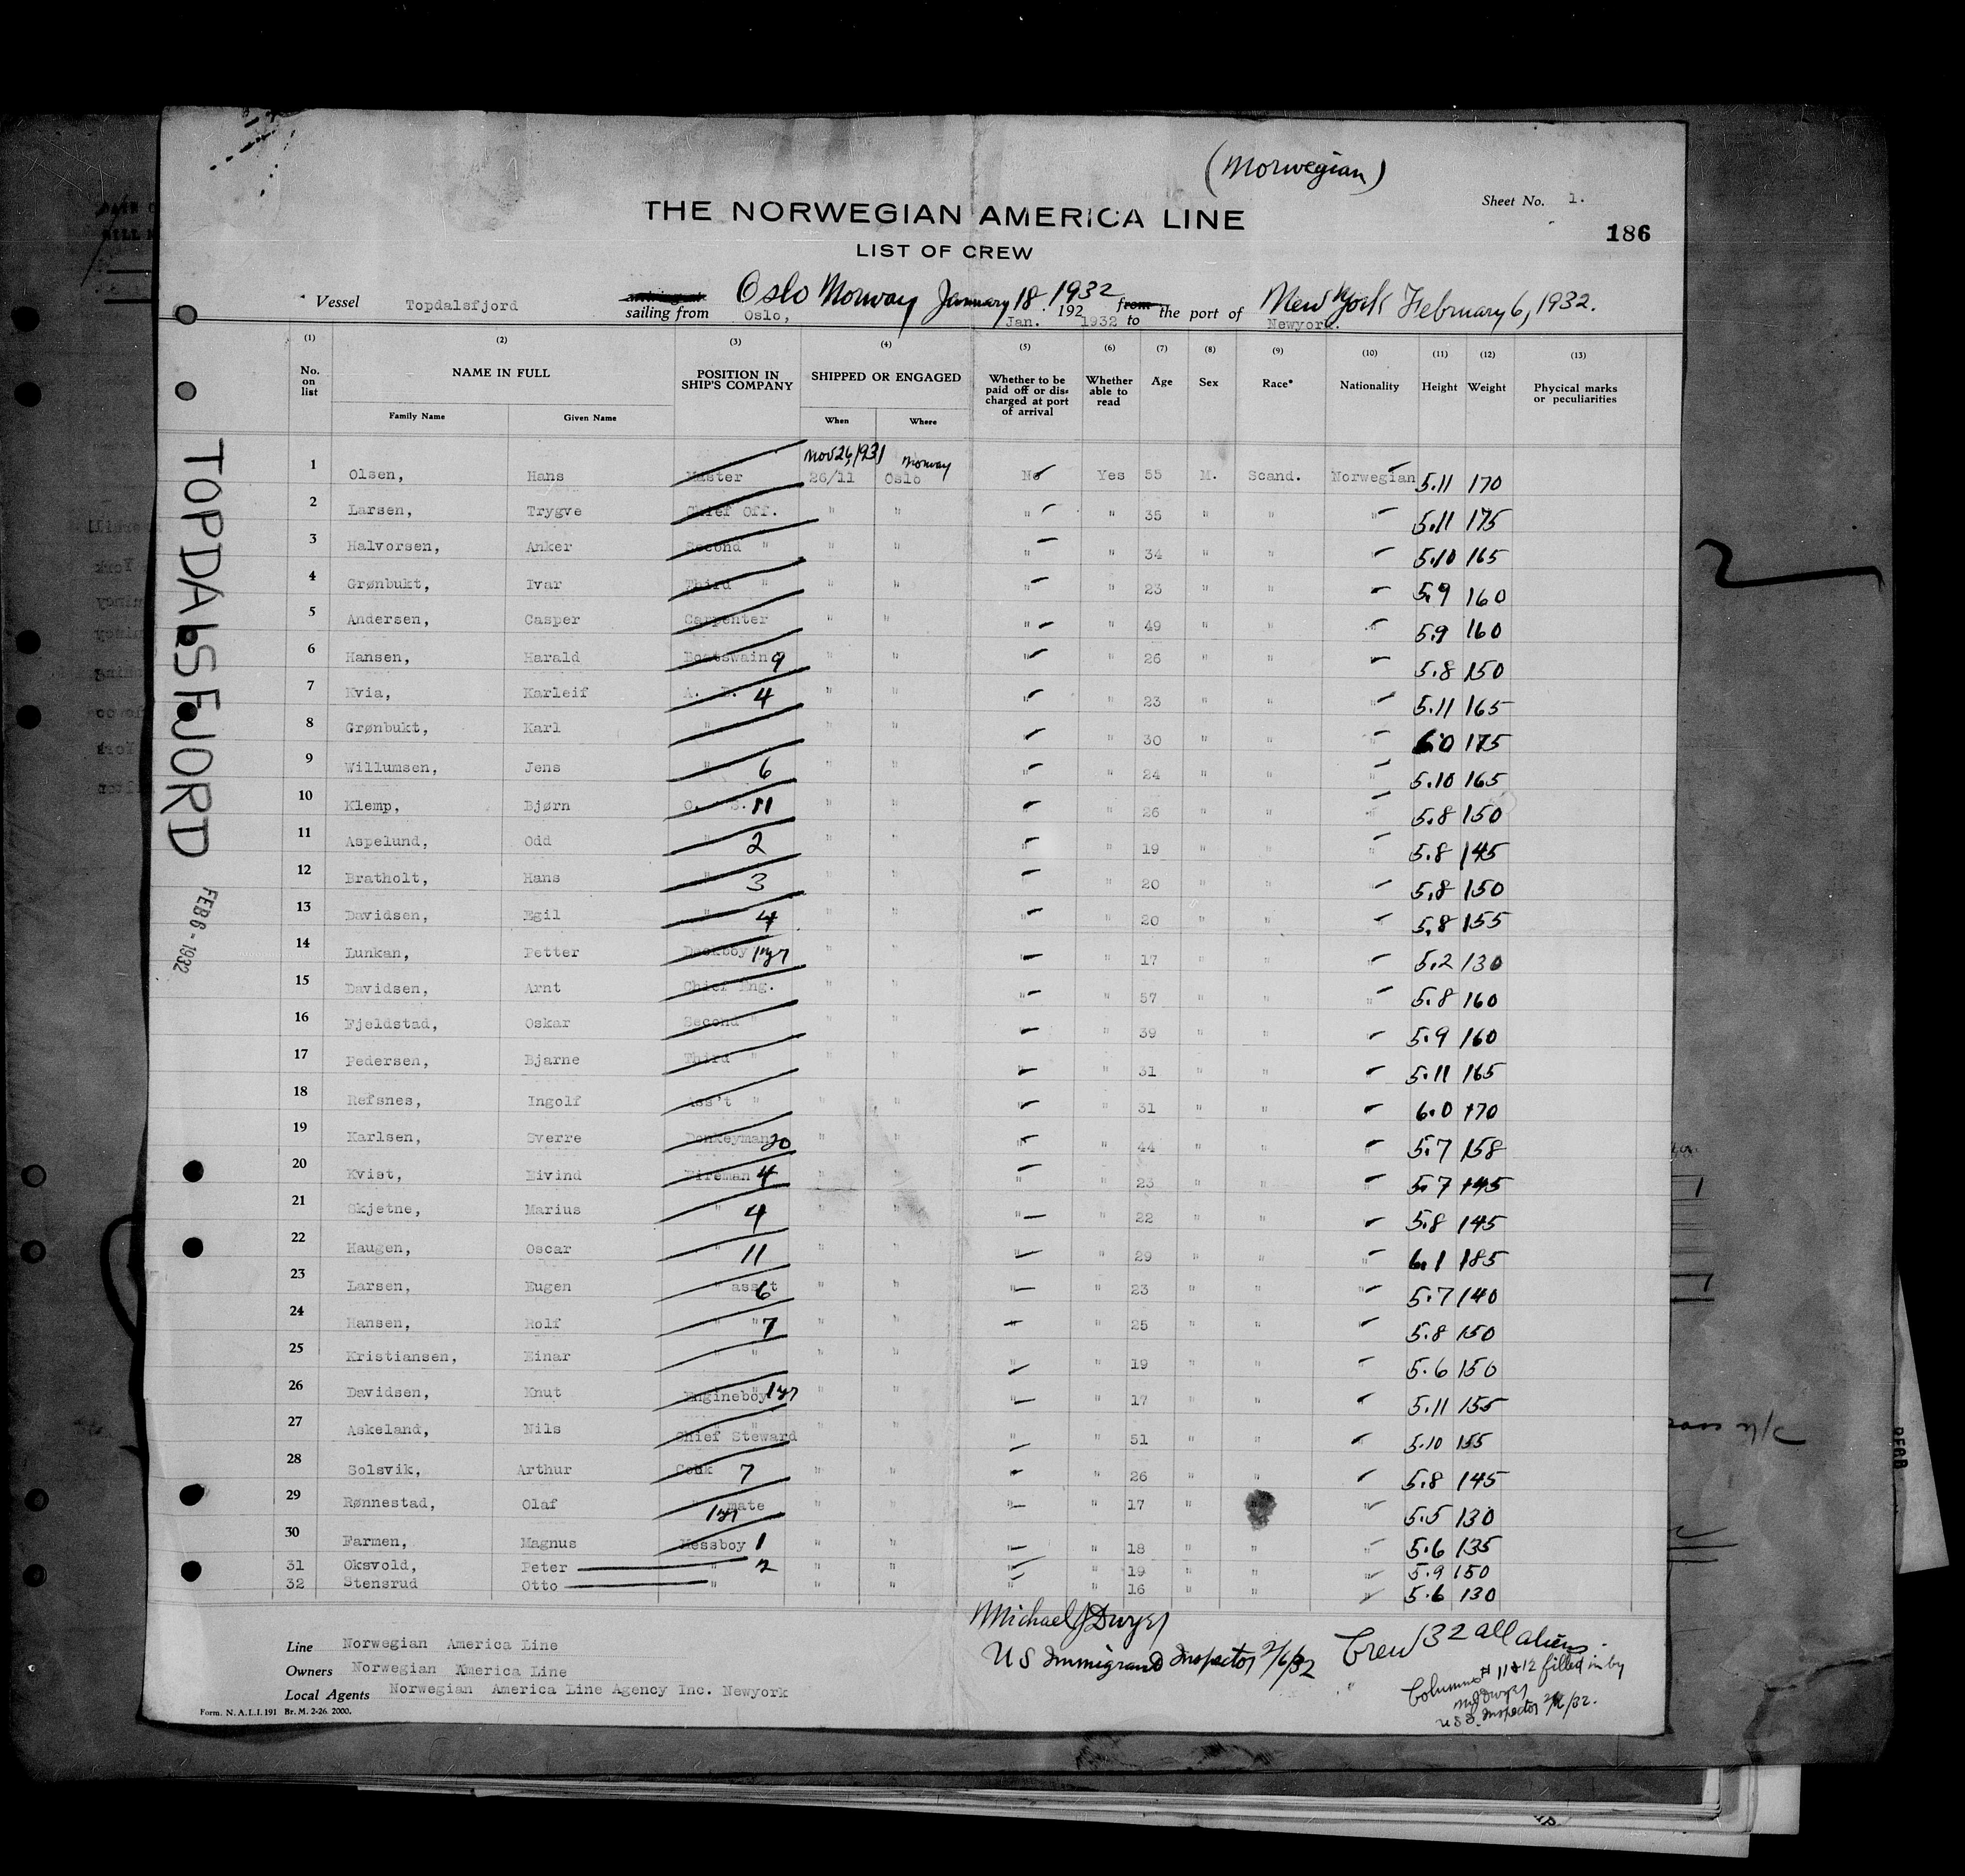 (Norwegian)
Sheet No. 1.
THE NORWEGIAN AMERICA LINE
186
LIST OF CREW
Oslo Norway January 18. 1932 New York February 6, 1932.
Vessel Topdalsfjord sailing from Oslo, Jan. 192 1932 from to the port of Newyork.
(1) (2) (3) (4) (5) (6) (7) (8) (9) (10) (11) (12) (13)
No. on list NAME IN FULL POSITION IN SHIP'S COMPANY SHIPPED OR ENGAGED Whether to be paid off or dis=charged at port of arrival Whether able to read Age Sex Race* Nationality Height Weight Phycical marks or peculiarities
Family Name Given Name When Where
Nov 26, 1931 Norway
1 Olsen, Hans Master 26/11 Oslo No Yes 55 M. Scand. Norwegian 5.11 170
2 Larsen, Trygve Chief Off. " " " " 35 " " " 5.11 175
3 Halvorsen, Anker Second " " " " " 34 " " " 5.10 165
4 Grønbukt, Ivar Third " " " " " 23 " " " 5.9 160
5 Andersen, Casper Carpenter " " " " 49 " " " 5.9 160
6 Hansen, Harald Boatswain 9 " " " " 26 " " " 5.8 150
7 Kvia, Karleif A. B. 4 " " " " 23 " " " 5.11 165
8 Grønbukt, Karl " " " " " 30 " " " 6.0 175
9 Willumsen, Jens " 6 " " " " 24 " " " 5.10 165
10 Klemp, Bjørn O. S. 11 " " " " 26 " " " 5.8 150
11 Aspelund, Odd " 2 " " " " 19 " " " 5.8 145
12 Bratholt, Hans " 3 " " " " 20 " " " 5.8 150
13 Davidsen, Egil " 4 " " " " 20 " " " 5.8 155
14 Lunkan, Petter Deckboy 1 yr " " " " 17 " " " 5.2 130
15 Davidsen, Arnt Chief Eng. " " " " 57 " " " 5.8 160
16 Fjeldstad, Oskar Second " " " " " 39 " " " 5.9 160
17 Pedersen, Bjarne Third " " " " " 31 " " " 5.11 165
18 Refsnes, Ingolf Ass't " " " " " 31 " " " 6.0 170
19 Karlsen, Sverre Donkeyman 20 " " " " 44 " " " 5.7 158
20 Kvist, Eivind Fireman 4 " " " " 23 " " " 5.7 145
21 Skjetne, Marius " 4 " " " " 22 " " " 5.8 145
22 Haugen, Oscar " 11 " " " " 29 " " " 6.1 185
23 Larsen, Eugen " ass't 6 " " " " 23 " " " 5.7 140
24 Hansen, Rolf " " 7 " " " " 25 " " " 5.8 150
25 Kristiansen, Einar " " " " " " 19 " " " 5.6 150
26 Davidsen, Knut Engineboy 1 yr " " " " 17 " " " 5.11 155
27 Askeland, Nils Chief Steward " " " " 51 " " " 5.10 155
28 Solsvik, Arthur Cook 7 " " " " 26 " " " 5.8 145
29 Rønnestad, Olaf " mate 1 yr " " " " 17 " " " 5.5 130
30 Farmen, Magnus Messboy 1 " " " " 18 " " " 5.6 135
31 Oksvold, Peter " 2 " " " " 19 " " " 5.9 150
32 Stensrud Otto " " " " " 16 " " " 5.6 130
Michael J Dwyer
US Immigrand Inspector 2/6/32
Crew 32 all aliens.
Columns # 11 & 12 filled in by
M J Dwyer
U S I. Inspector 2/6/32.
Line Norwegian America Line
Owners Norwegian America Line
Local Agents Norwegian America Line Agency Inc. Newyork
Form. N. A. L. I. 191 Br. M. 2-26. 2000.
TOPDALSFJORD
FEB 6 - 1932